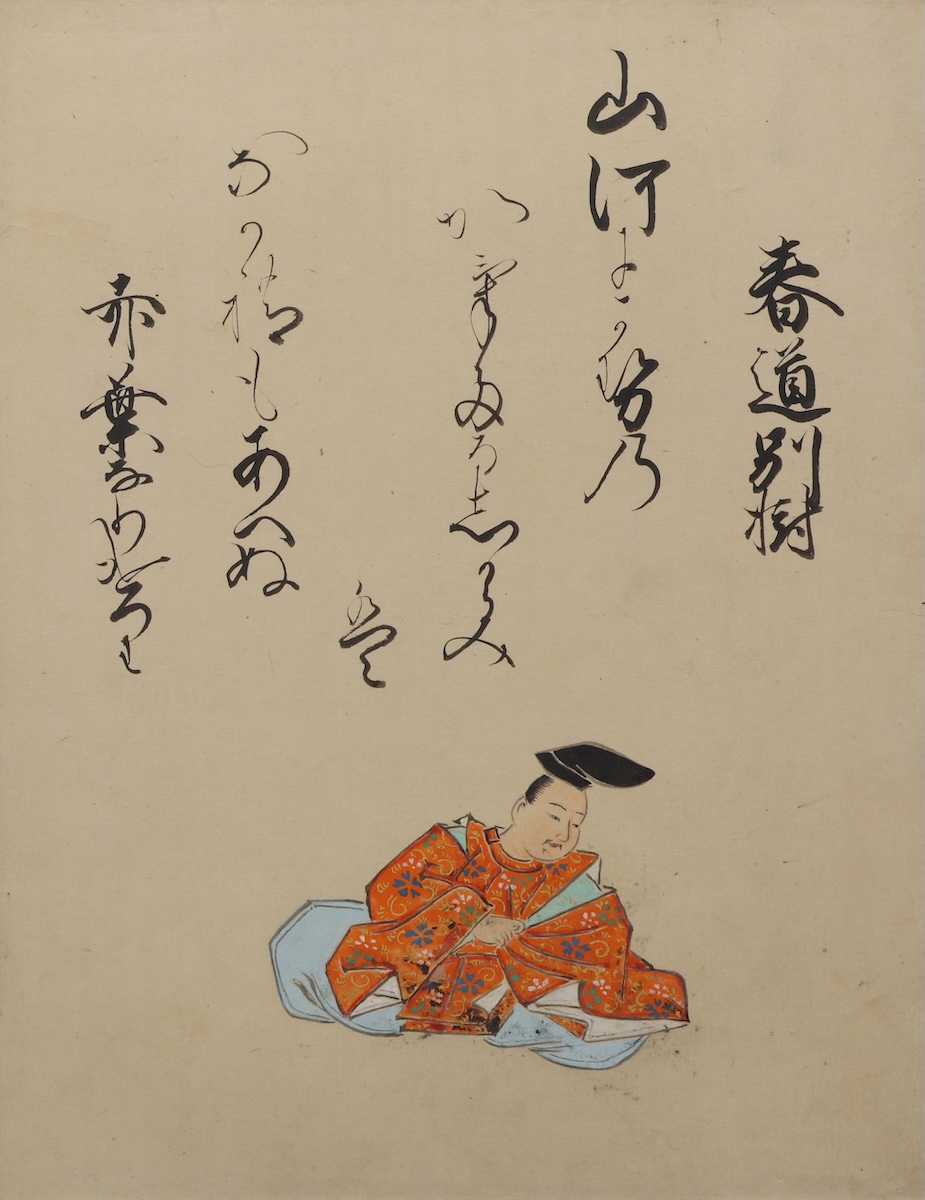 春道別樹
山河にかせ乃
かけたるしからみ
盤
なかれもあへぬ
赤葉なりけり